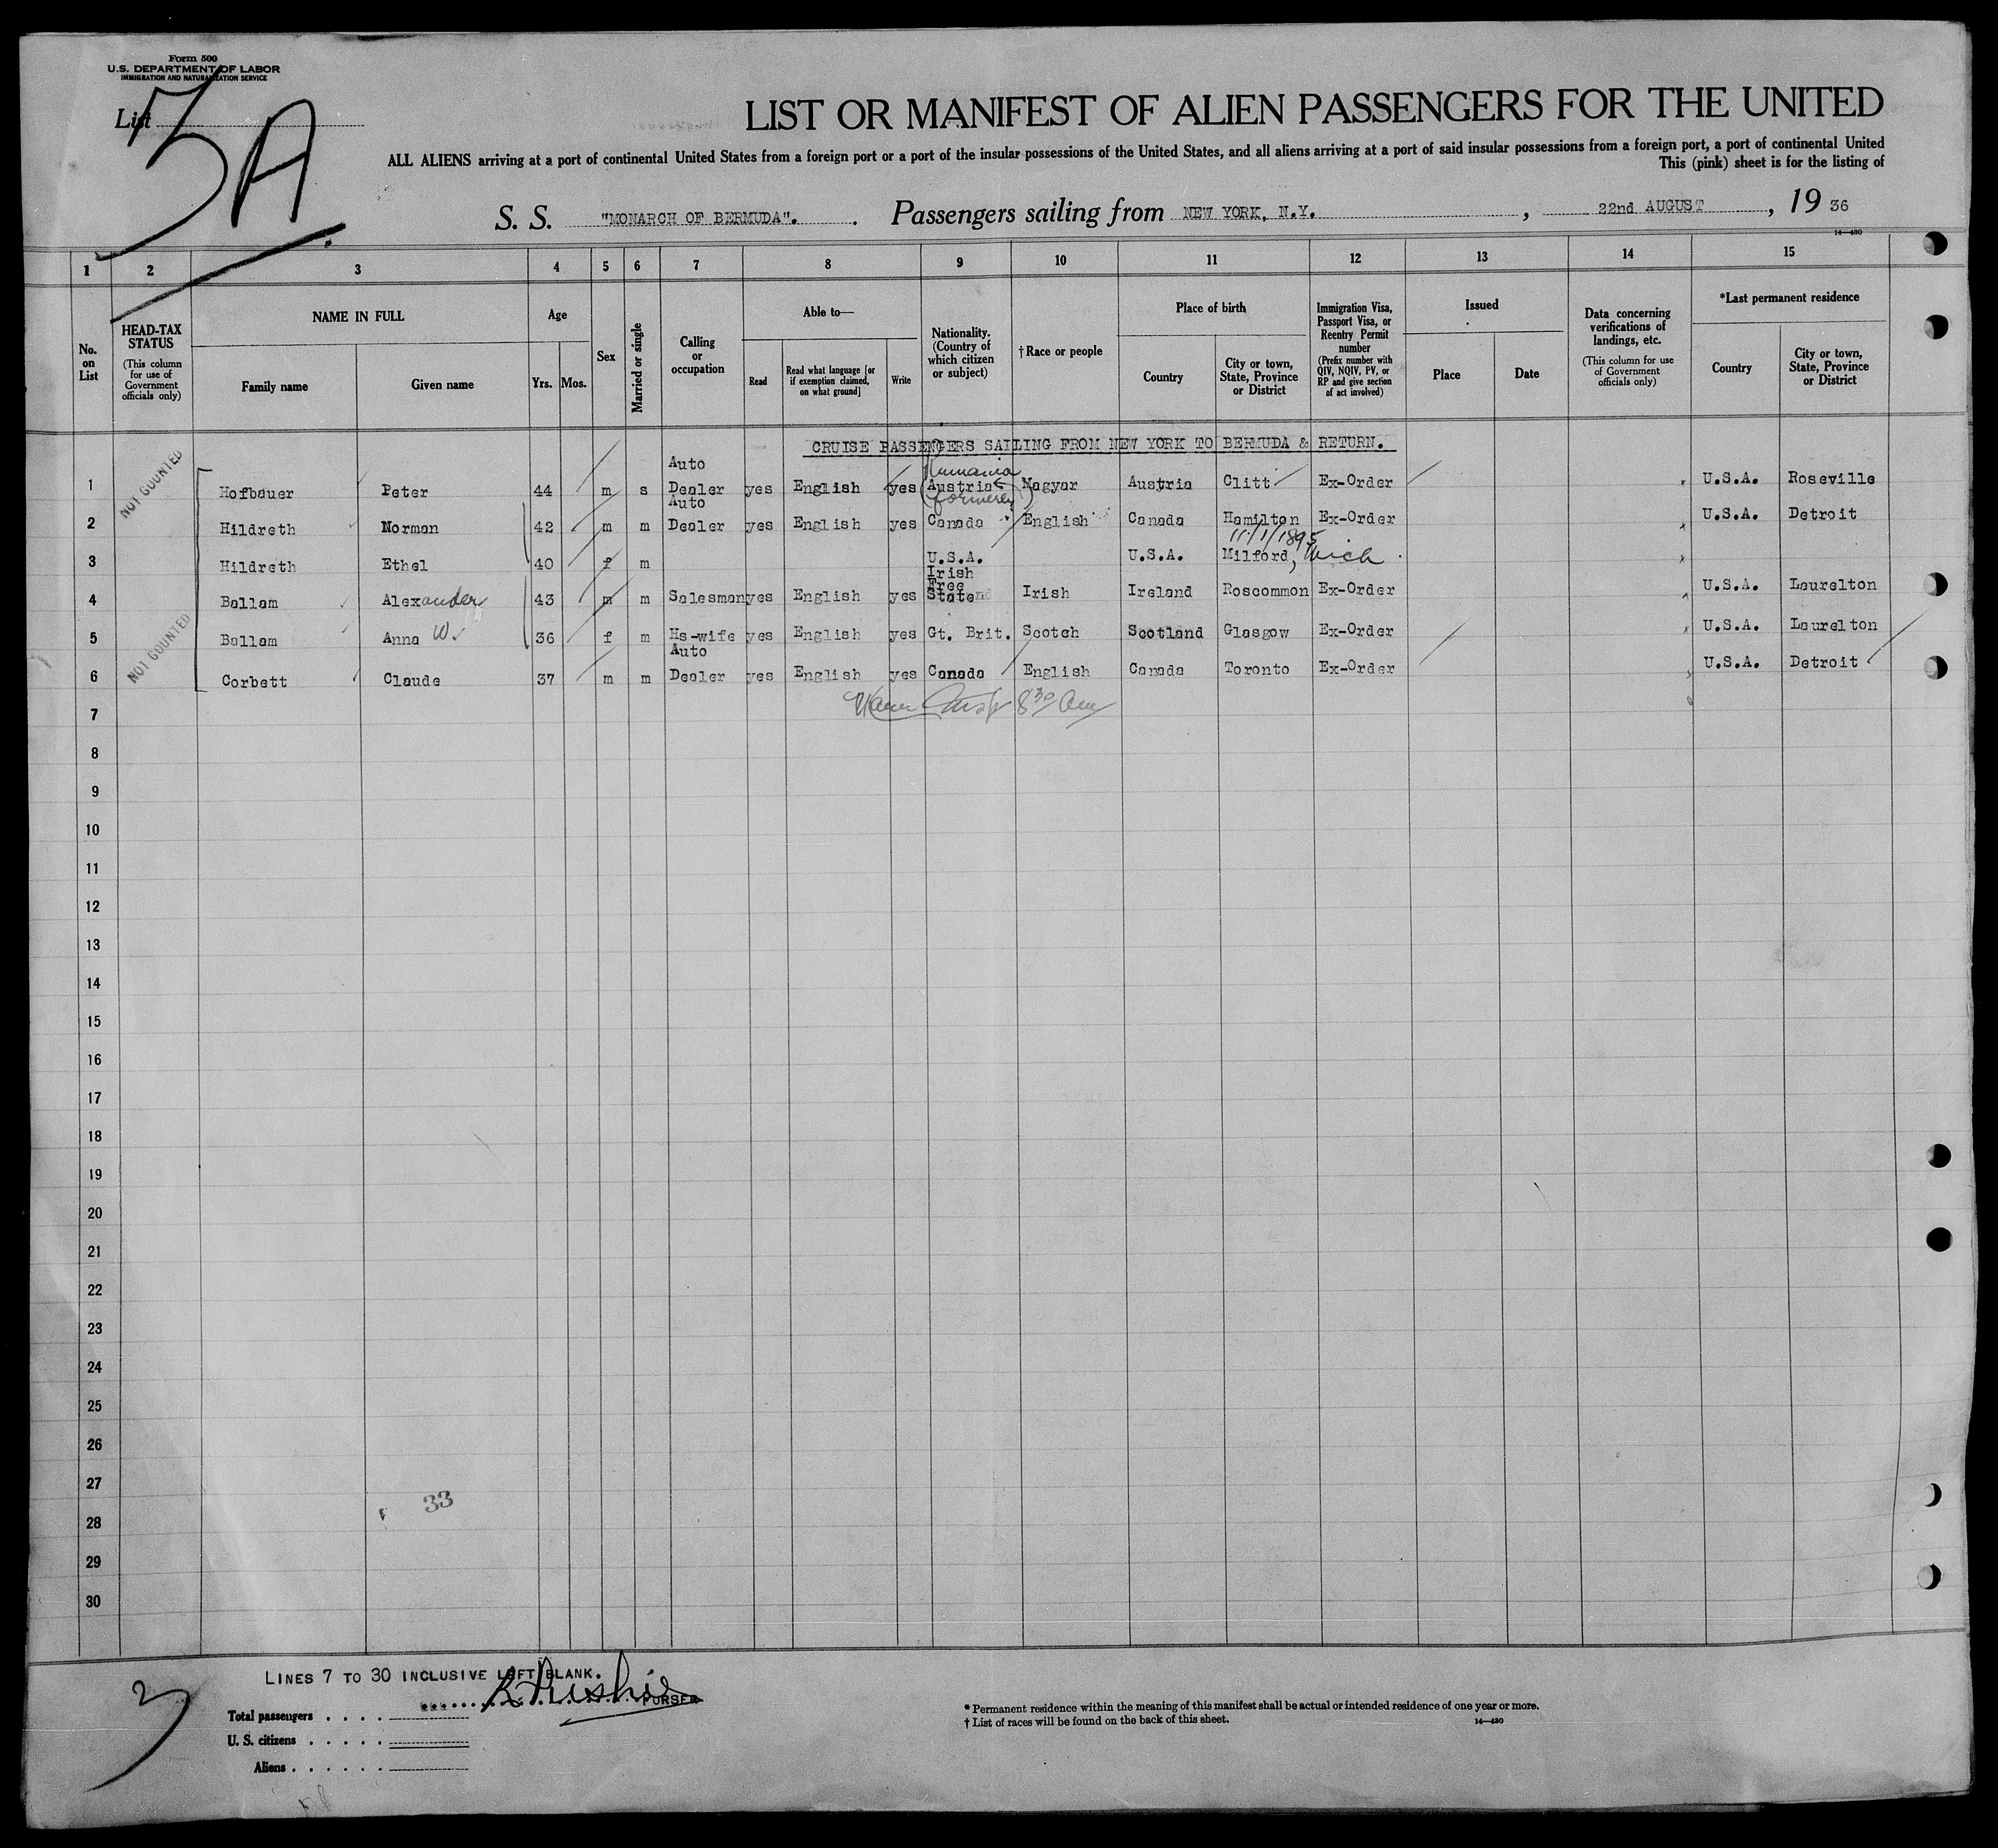 Form 500
U.S. DEPARTMENT OF LABOR
IMMIGRATION AND NATURALIZATION SERVICE
List
5A
LIST OR MANIFEST OF ALIEN PASSENGERS FOR THE UNITED
ALL ALIENS arriving at a port of continental United States from a foreign port or a port of the insular possessions of the United States, and all aliens arriving at a port of said insular possessions from a foreign port, a port of continental United
This (pink) sheet is for the listing of
S. S. "MONARCH OF BERMUDA". Passengers sailing from NEW YORK, N.Y. , 22nd AUGUST , 19 36
14—430
1 2 3 4 5 6 7 8 9 10 11 12 13 14 15
No. on List
HEAD-TAX STATUS (This column for use of Government officials only)
NAME IN FULL Family name Given name
Age Yrs. Mos.
Sex
Married or single
Calling or occupation
Able to— Read Read what language [or if exemption claimed, on what ground] Write
Nationality. (Country of which citizen or subject)
†Race or people
Place of birth Country City or town, State, Province or District
Immigration Visa, Passport Visa, or Reentry Permit number (Prefix number with QIV, NQIV, PV, or RP and give section of act involved)
Issued Place Date
Data concerning verifications of landings, etc. (This column for use of Government officials only)
*Last permanent residence Country City or town, State, Province or District
CRUISE PASSENGERS SAILING FROM NEW YORK TO BERMUDA & RETURN.
NOT COUNTED
1 Hofbauer Peter 44 m s Auto Dealer yes English yes Rumania Austria (formerly) Magyar Austria Clitt Ex-Order U.S.A. Roseville
2 Hildreth Norman 42 m m Auto Dealer yes English yes Canada English Canada Hamilton Ex-Order U.S.A. Detroit
11/1/1895
3 Hildreth Ethel 40 f m U.S.A. U.S.A. Milford, Mich
4 Ballam Alexander 43 m m Salesman yes English yes Irish Free State Irish Ireland Roscommon Ex-Order U.S.A. Laurelton
NOT COUNTED
5 Ballam Anna W. 36 f m Hs-wife yes English yes Gt. Brit. Scotch Scotland Glasgow Ex-Order U.S.A. Laurelton
6 Corbett Claude 37 m m Auto Dealer yes English yes Canada English Canada Toronto Ex-Order U.S.A. Detroit
8 30 am
7
8
9
10
11
12
13
14
15
16
17
18
19
20
21
22
23
24
25
26
27
33
28
29
30
LINES 7 TO 30 INCLUSIVE LEFT BLANK.
PURSER
3
Total passengers . . . .
U. S. citizens . . . . .
Aliens . . . . . .
* Permanent residence within the meaning of this manifest shall be actual or intended residence of one year or more.
† List of races will be found on the back of this sheet.
14—430